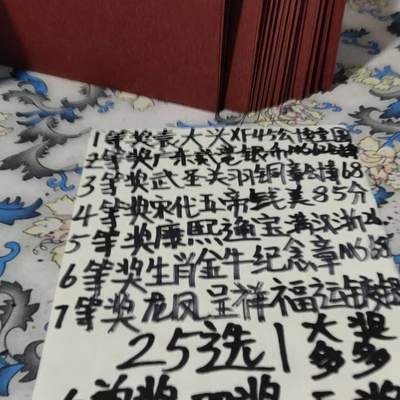 1等奖袁大头XF45公博
2等奖广东武芝银币MS62
3等奖武圣关羽铜章公博68
4等奖宋代五帝钱美85分
5等奖康熙通宝满汉浙
6等奖生肖金牛纪念章MS68
7等奖龙凤呈祥福运
25选1大奖多多